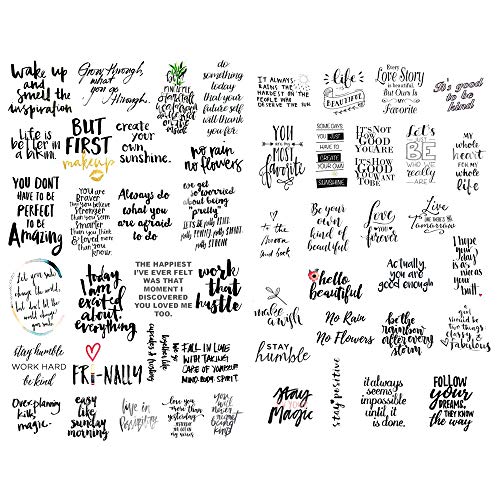 wake up
and
smell the
inspiration
Grow through
what
you go
through.
BE A
PINEAPPLE
stand tall
wear a crown
and be sweet
on the
inside
do
something
today that
your future
self will
thank
you for.
Life is
better in
a bikini.
BUT
FIRST
makeup
create
your
own
sunshine.
no rain
no flowers
YOU DON'T
HAVE TO BE
PERFECT
TO BE
Amazing
You are
Braver
Than you believe
Stronger
Than you seem
Smarter
Than you think
& Loved
more than
you know
Always do
what you
are afraid
to do
we get
so worried
about being
"pretty"
LET'S BE pretty KIND.
pretty FUNNY.
pretty SMART.
pretty STRONG.
Let your smile
change the world,
but don't let the
world change
your smile
today
I am
excited
about
everything
THE HAPPIEST
I'VE EVER FELT
WAS THAT
MOMENT I
DISCOVERED
YOU LOVED ME
TOO.
work
that
hustle
stay humble
WORK HARD
be kind
FRI-NALLY
we go
together like
cupcakes & frosting
FALL IN LOVE
WITH TAKING
CARE OF YOURSELF
MIND. BODY. SPIRIT.
Over-planning
kills
magic.
easy
like
sunday
morning
live in
possibility
Love you
more than
yesterday
you will
never
regret
being
kind
IT ALWAYS
RAINS THE
HARDEST ON
THE PEOPLE
WHO
DESERVE THE SUN
life
is
BEAUTIFUL
Every
Love Story
is
Beautiful
But Ours Is
My
Favorite
It's
good to be
kind
YOU
are MY
MOST
FAVORITE
SOME DAYS
YOU JUST
HAVE TO
CREATE
YOUR OWN
SUNSHINE
IT'S NOT
HOW
GOOD
YOU ARE
IT'S HOW
GOOD
YOU WANT
TO BE.
Let's
BE
WHO WE
REALLY
ARE
MY
whole
HEART
FOR MY
whole
LIFE
to
the
Moon
and
back
Be your
own
kind of
beautiful
Love
you
forever
Live
LIKE THERE'S NO
Tomorrow
hello
beautiful
Actually,
you are
good enough
I
hope
your
day is
as nice
as your
butt.
make
a wish
No Rain
No Flowers
be the
rainbow
after every
storm
A
girl
should be
two things
classy &
fabulous
STAY
humble
Stay
Magic
stay positive
it always
seems
impossible
until it
is done.
FOLLOW
your
DREAMS,
THEY KNOW
THE WAY